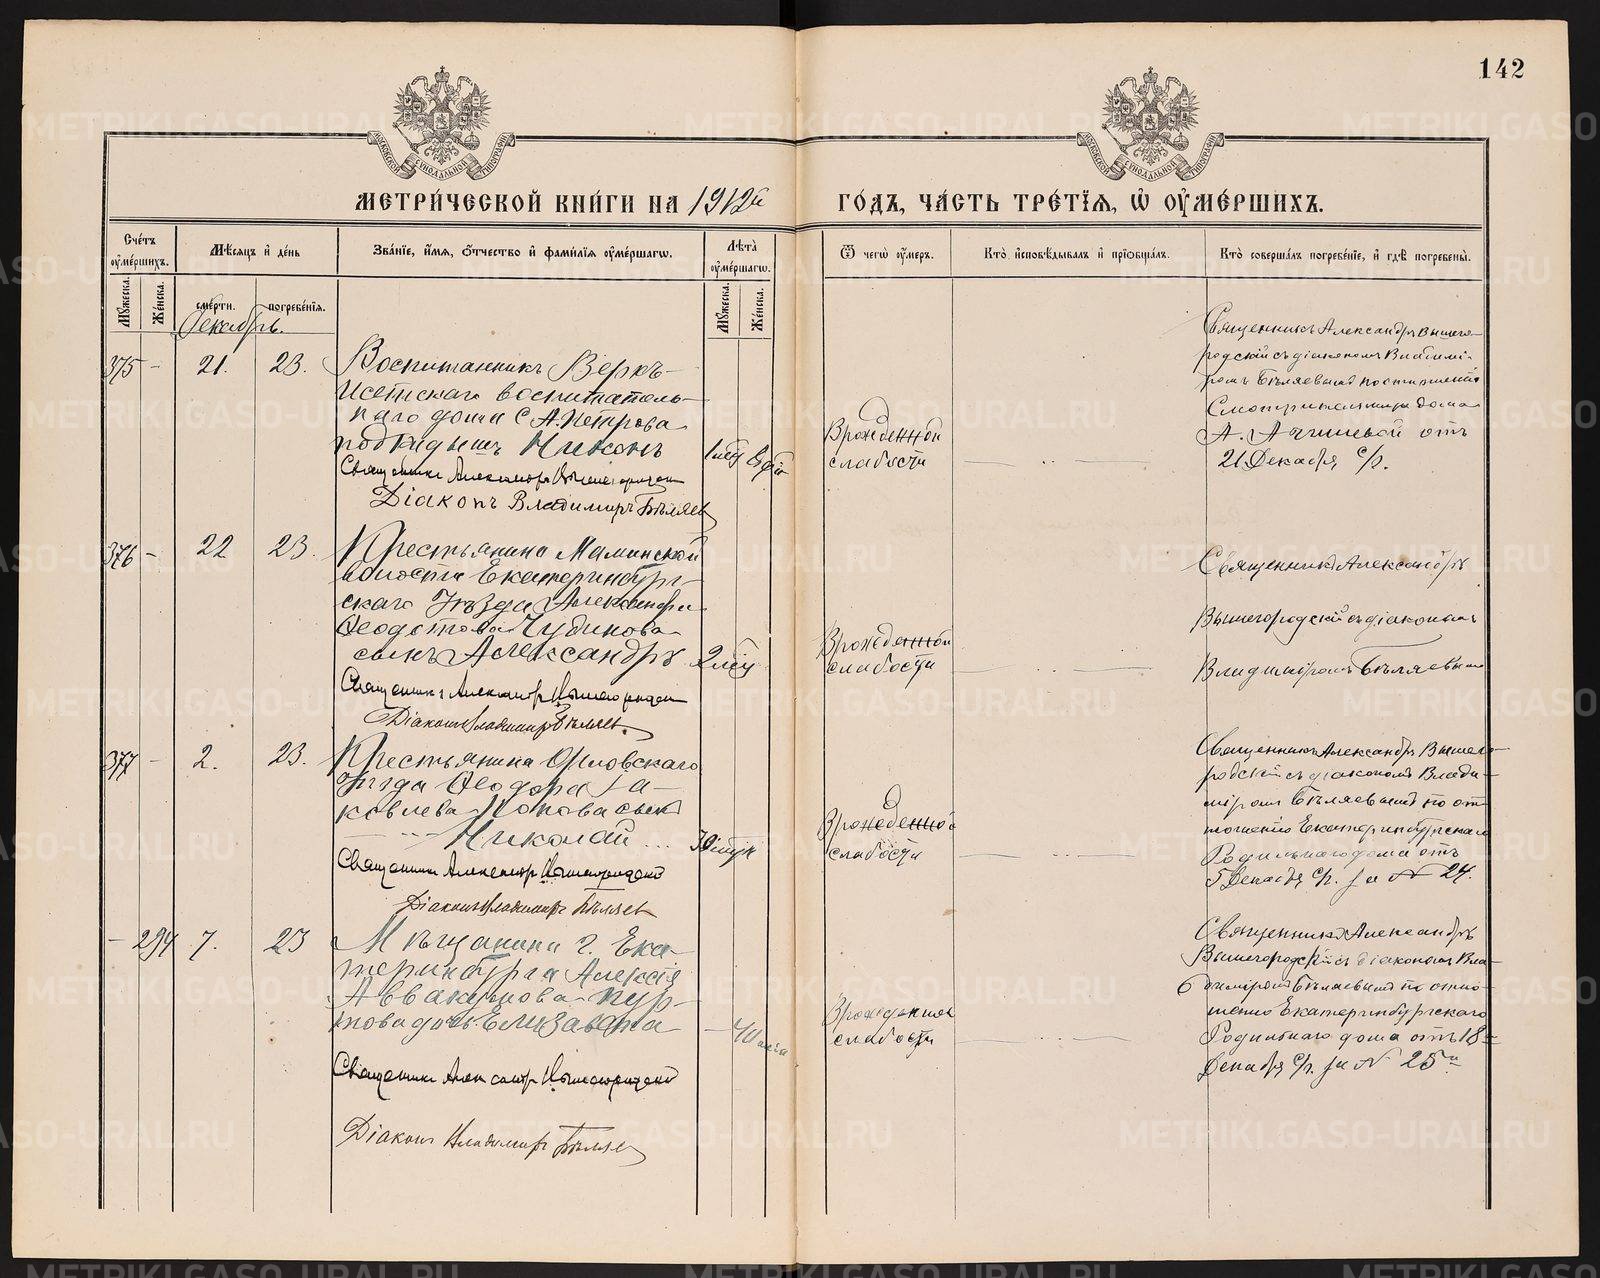 142
МЕТРИ́ЧЕСКОЙ КНИ́ГИ НА 1912й ГО́ДЪ, ЧА́СТЬ ТРЕ́ТІЯ, Ѡ҆ ОУ҆МЕ́РШИХЪ.
Сче́тъ оу҆ме́ршихъ.
Мѣ́сяцъ и҆ де́нь
Зва́ніе, и҆́мя, ѻ҆́тчество и҆ фами́лія оу҆ме́ршагѡ.
Лѣ́та оу҆ме́ршагѡ.
Ѿ чегѡ̀ оу҆́меръ.
Кто̀ и҆сповѣ́дывалъ и҆ прїѡбща́лъ.
Кто̀ соверша́лъ погребе́ніе, и҆ гдѣ̀ погребены̀.
Мꙋ́жеска.
Же́нска.
сме́рти.
погребе́нія.
Мꙋ́жеска.
Же́нска.
Декабрь.
375 - 21. 23.
Воспитанникъ Верхъ-
Исетскаго воспитатель-
наго дома С. А. Петрова
подкидышъ Никонъ
Священникъ Александръ Вышегородскій
Діаконъ Владимиръ Бѣляевъ
Врожденной
слабости
Священникъ Александръ Вышего-
родскій съ діакономъ Владимі-
ромъ Бѣляевымъ по
Смотрительницы дома
А. от
21 Декабря с/г.
376 - 22 23.
Крестьянина Маминской
волости Екатеринбург-
скаго Уѣзда Александра
Ѳеодотова Чудинова
сынъ Александръ 2 мѣц
Священникъ Александръ Вышегородскій
Діаконъ Владимиръ Бѣляевъ.
Врожденной
слабости
Священникъ Александръ
Вышегородскій съ діакономъ
Владиміромъ Бѣляевымъ
377 - 2. 23.
Крестьянина Орловскаго
уѣзда Ѳеодора Іа-
ковлева Попова сынъ
Николай
Священникъ Александръ Вышегородскій
Діаконъ Владимиръ Бѣляевъ
Врожденной
слабости
Священникъ Александръ Вышего-
родскій съ діакономъ Влади-
міромъ Бѣляевымъ по от-
ношенію Екатеринбургскаго
Родильнаго дома отъ
5 Декабря с/г. за № 24.
- 294 7. 23
Мѣщанина г. Ека-
теринбурга Алексія
Аввакумова
дочь Елизавета
Священникъ Александръ Вышегородскій
Діаконъ Владимиръ Бѣляевъ
Врожденной
слабости
Священникъ Александръ
Вышегородскій съ діакономъ Вла-
диміромъ Бѣляевымъ по отно-
шенію Екатеринбургскаго
Родильнаго дома отъ 18
Декабря с/г. за № 25
METRIKI.GASO-URAL.RU